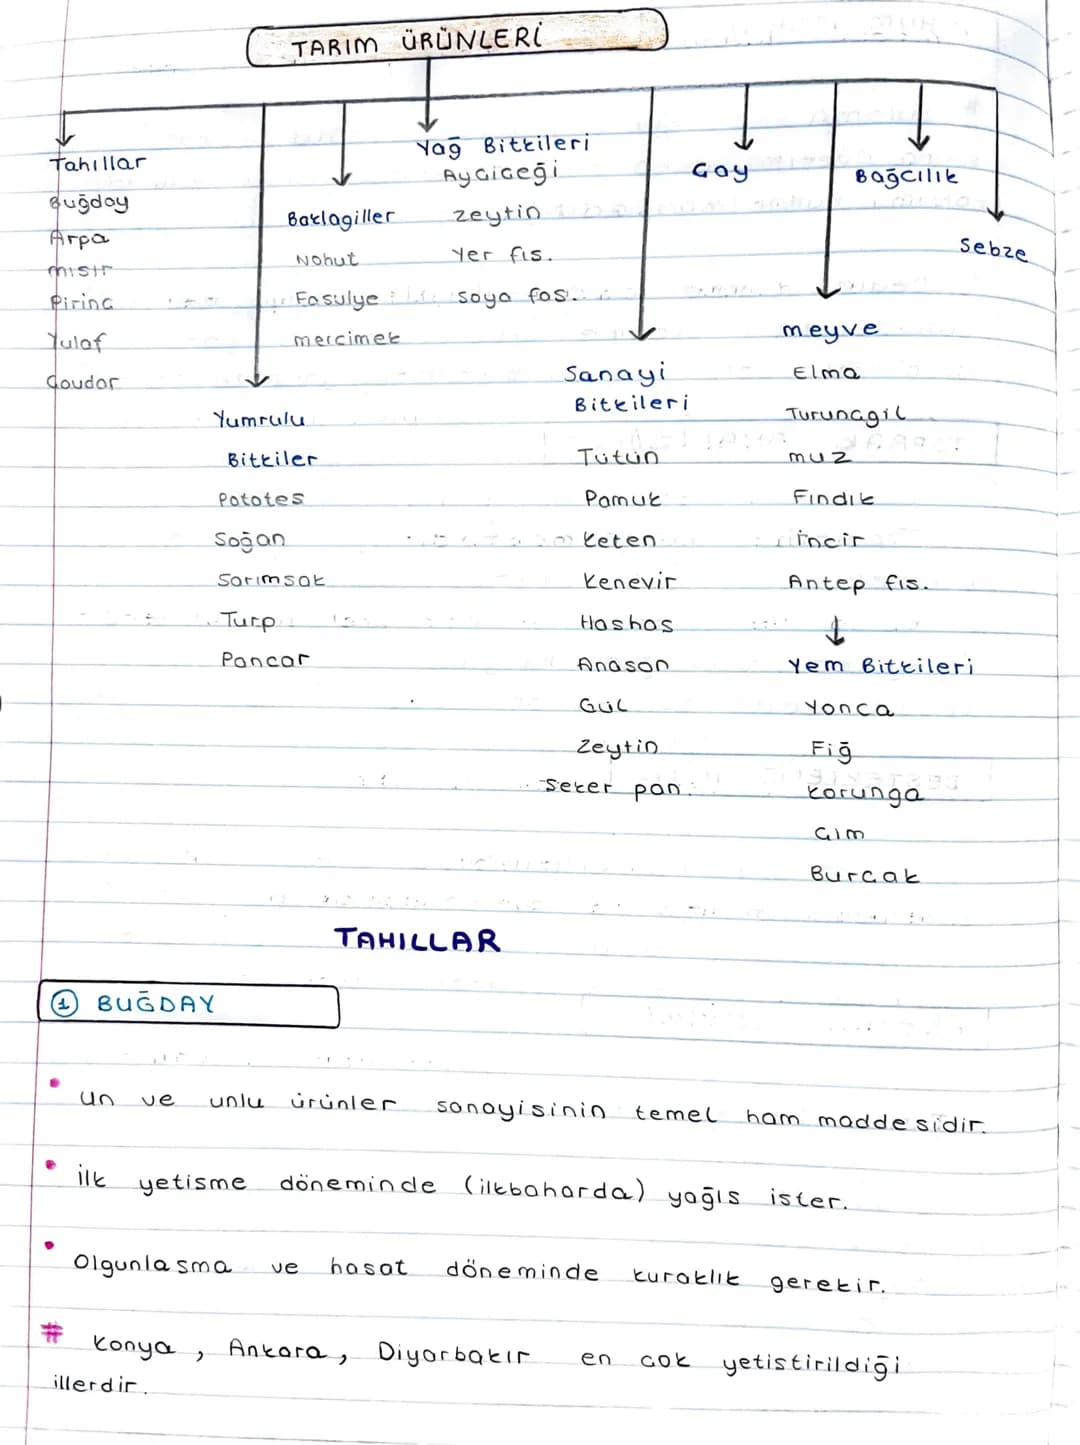 TARIM ÜRÜNLERİ
Tahıllar
Buğday
Arpa
mısır
Pirinc
Yulaf
Coudar
Yumrulu
Bitkiler
Patates
Soğan
Sarımsak
Turp
Pancar
Baklagiller
Nohut
Fasulye
mercimek
Yağ Bitkileri
Ayciceği
zeytin
Yer fıs.
soya fas.
Sanayi
Bitkileri
Tütün
Pamuk
Keten
Kenevir
Hashas
Anason
Gül
Zeytin
Seker pan.
Cay
meyve
Elma
Turuncgil
muz
Fındık
İncir
Antep fıs.
Yem Bitkileri
Yonca
Fiğ
Korunga
Cim
Burcak
Bağcılık
Sebze
TAHILLAR
1 BUĞDAY
• un ve unlu ürünler sanayisinin temel ham maddesidir.
• ilk yetisme döneminde (ilkbaharda) yağıs ister.
• Olgunlasma ve hasat döneminde kuraklık gerekir.
# Konya, Ankara, Diyarbakır en cok yetistirildiği
illerdir.